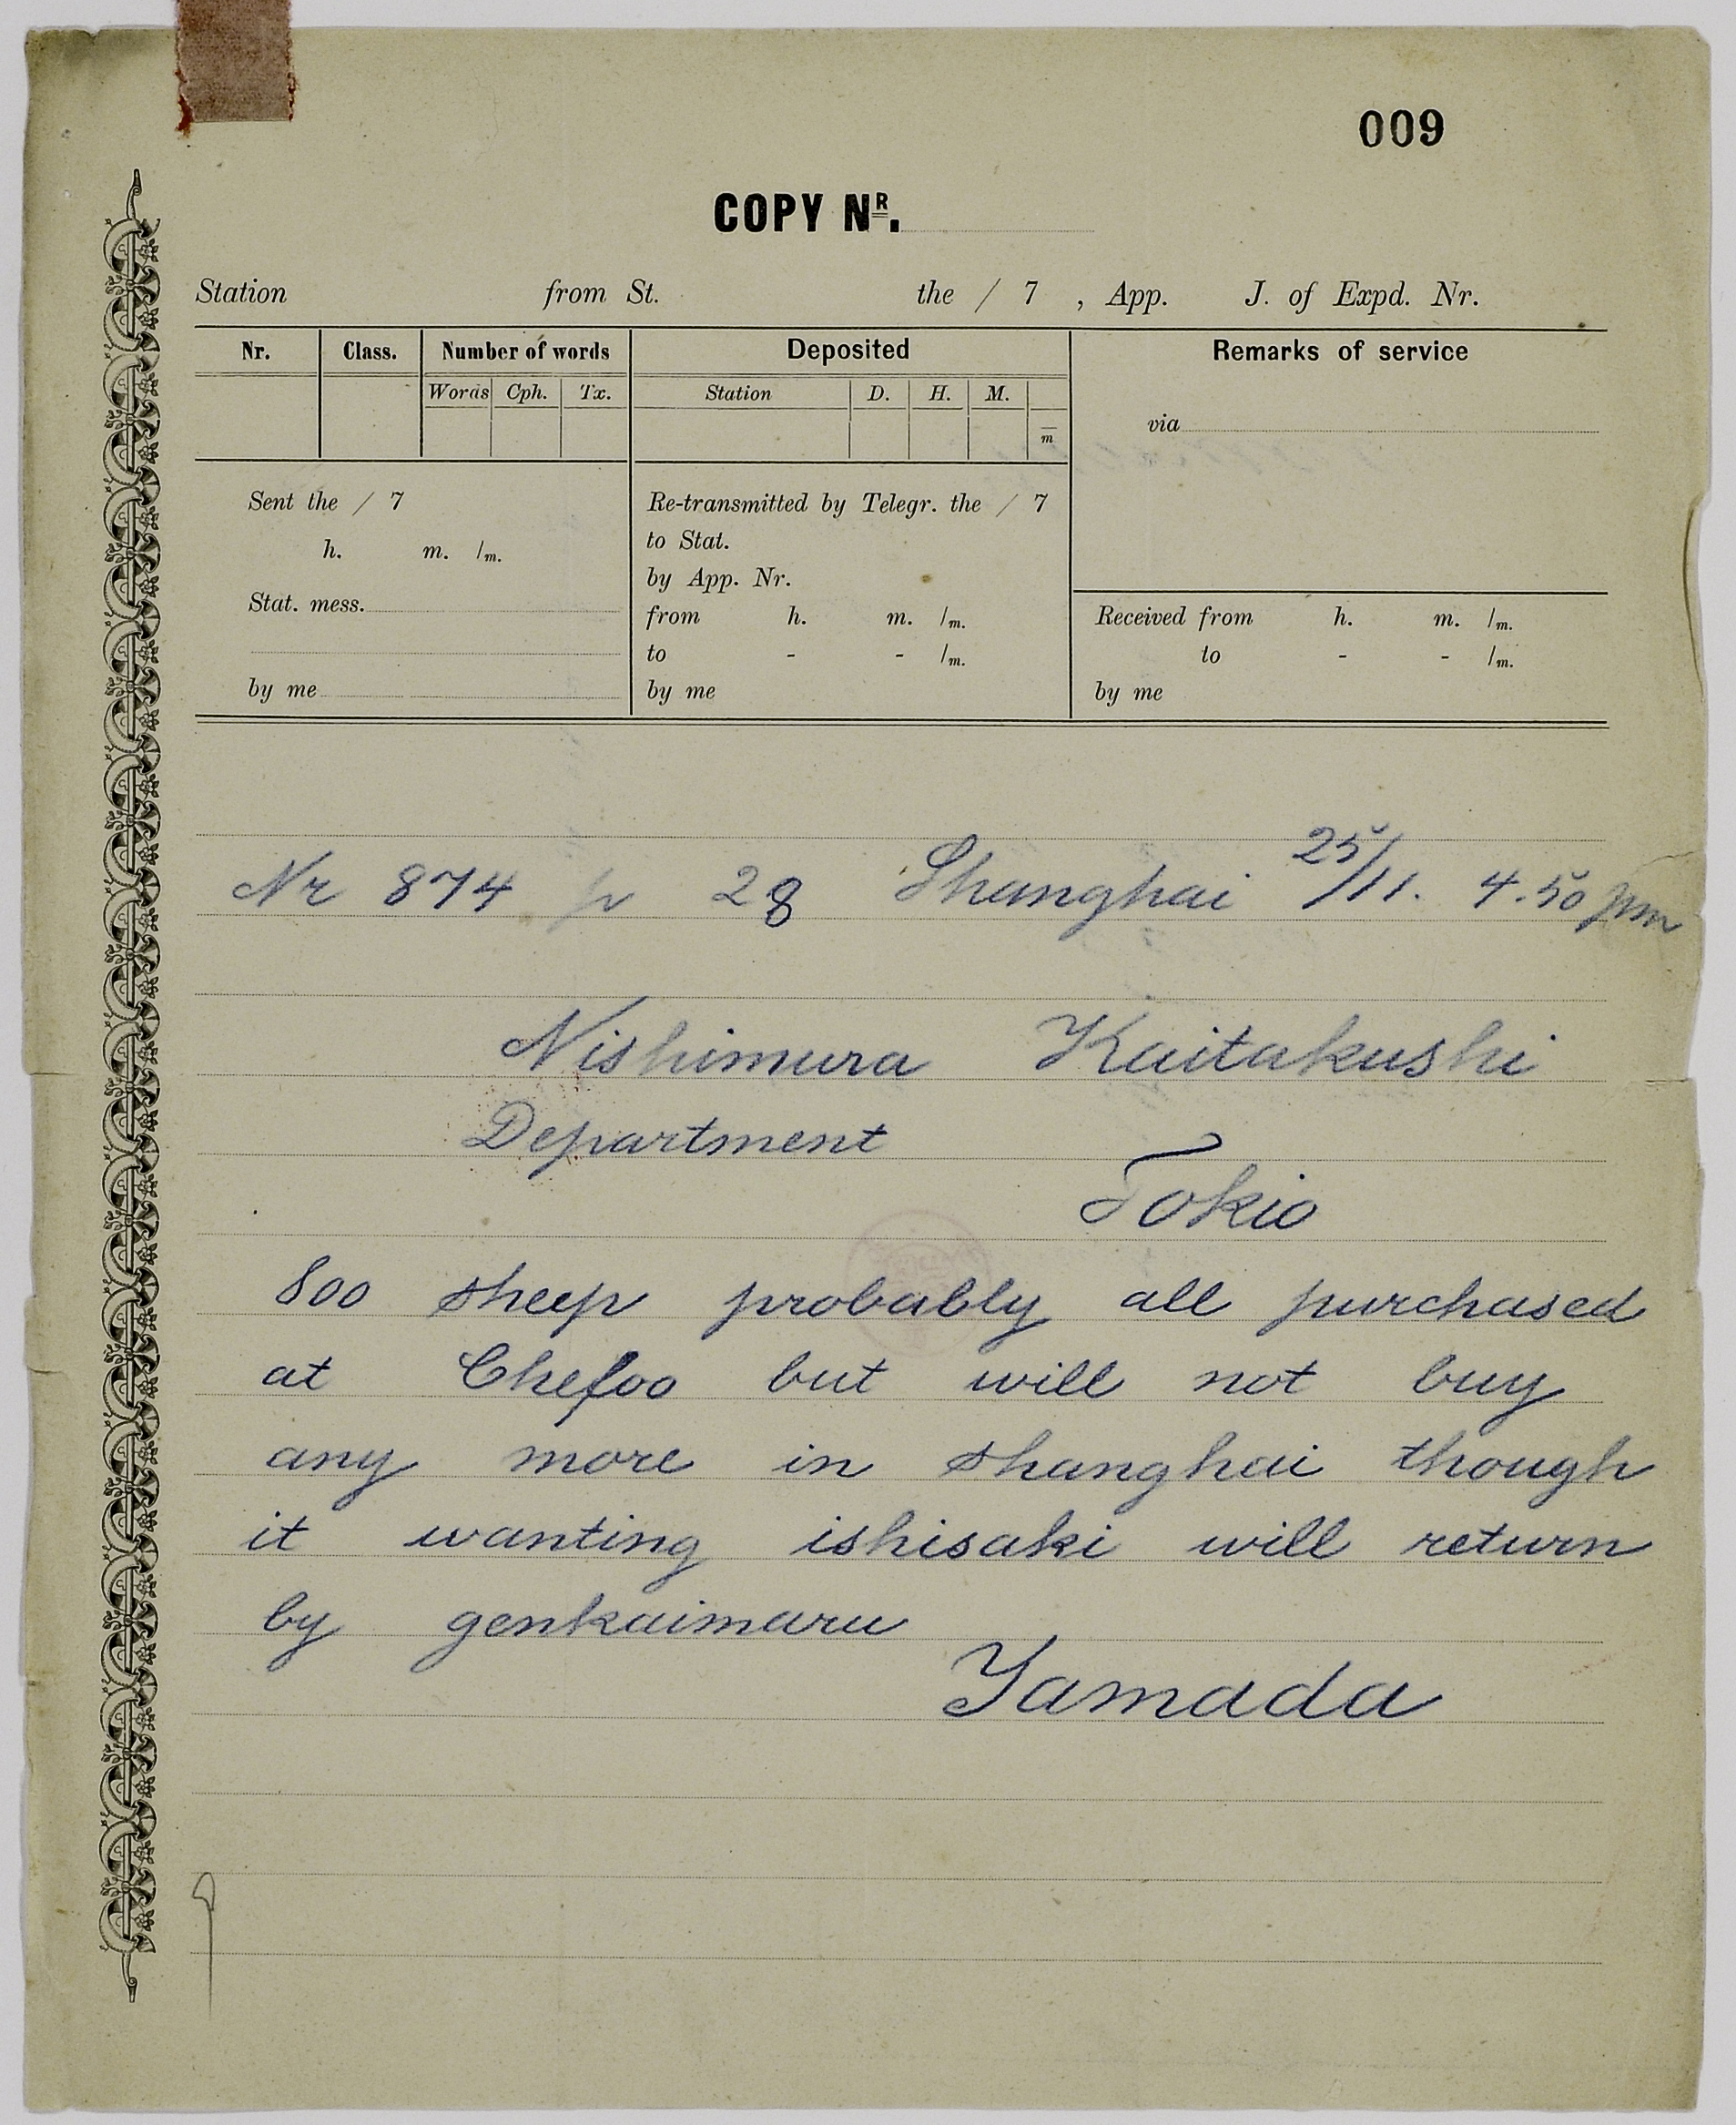 009
COPY Nᴿ.
Station from St. the / 7 , App. J. of Expd. Nr.
Nr. Class. Number of words Deposited Remarks of service
Words Cph. Tx. Station D. H. M.
m
via
Sent the / 7 Re-transmitted by Telegr. the / 7
to Stat.
h. m. /m.
by App. Nr.
Stat. mess.
from h. m. /m. Received from h. m. /m.
to - - /m. to - - /m.
by me by me by me
Nr 874 p 28 Shanghai 25/11. 4.50 pm
Nishimura Kaitakushi
Department
Tokio
800 sheep probably all purchased
at Chefoo but will not buy
any more in shanghai though
it wanting ishisaki will return
by genkaimaru
Yamada